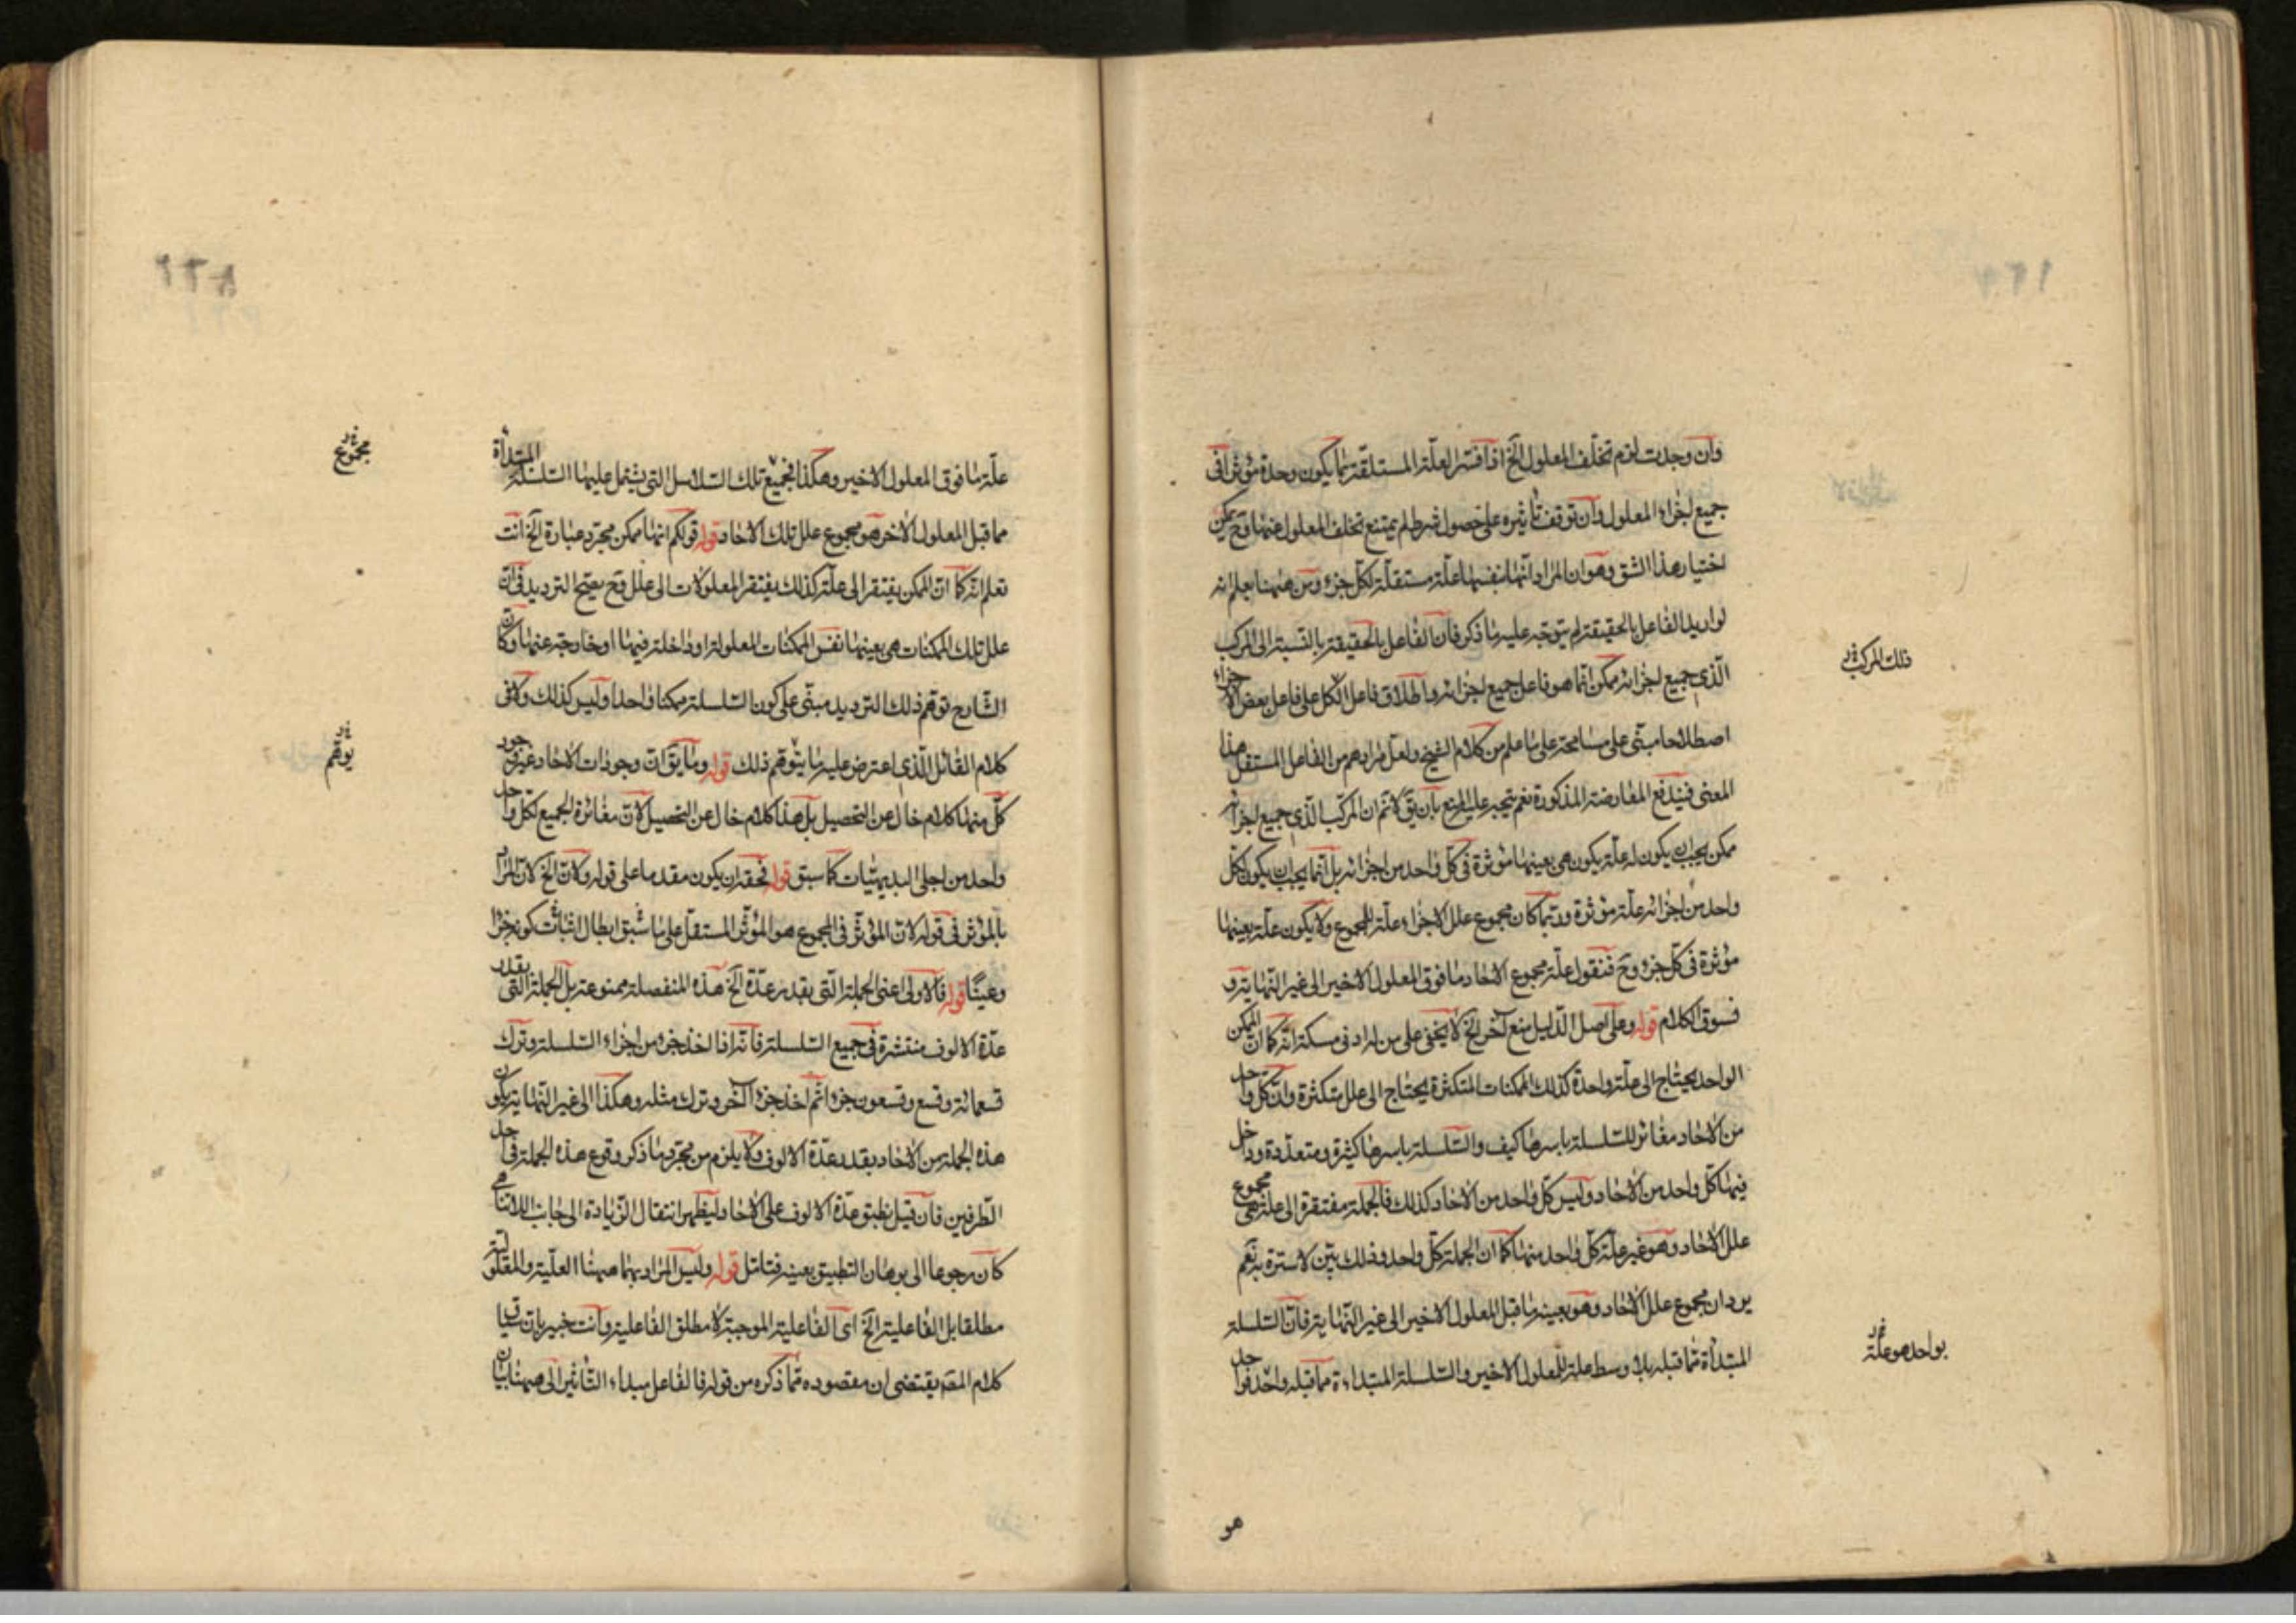 وان وجدت لزم تخلّف المعلول الخ اذا فسّر العلّة المستقلّة بما يكون وحدة مؤثرا فى
جميع اجزاء المعلول وان توقف تأثيره على حصول شرط لم يمتنع تخلف المعلول عنها وح يمكن
اختيار هذا الشق وهو ان المراد انّها بنفسها علّة مستقلّة لكلّ جزء ومن ههنا يعلم انه
لو اريد الفاعل بالحقيقة لم يتوجّه عليه ما ذكر فان الفاعل بالحقيقة بالنسبة الى المركب
الّذى جميع اجزائه ممكن انّما هو فاعل جميع اجزائه واطلاق فاعل الكل على فاعل بعض الاجزاء
اصطلاحا مبنّى على مسامحة على ما علم من كلام الشيخ ولعلّ مرادهم من الفاعل المستقل هذا
المعنى فيندفع المعارضة المذكورة نعم يتجه عليه المنع بان يق لا نم ان المركّب الّذى جميع اجزائه
ممكن يجب ان يكون له علّة يكون هى بعينها مؤثرة فى كلّ واحد من اجزائه بل انّما يجب ان يكون لكلّ
واحد من اجزائه علّة مؤثرة وربّما كان مجموع علل الاجزاء علّة المجموع ولا يكون علّة بعينها
مؤثرة فى كلّ جزء وح فنقول علّة مجموع الاحاد ما فوق المعلول الاخير الى غير النّهاية و
فسوق الكلام قوله وعلى اصل الدّليل منع آخر الخ لا يخفى على من له ادنى مسكة انّه كما ان الممكن
الواحد يحتاج الى علّة واحدة كذلك الممكنات المتكثرة يحتاج الى علل متكثرة وان كلّ واحد
من الاحاد مغائر للسّلسلة باسرها كيف والسّلسلة باسرها كثيرة ومتعدّدة وداخل
فيها كلّ واحد من الاحاد وليس كلّ واحد من الاحاد كذلك فالجملة مفتقرة الى علّة هى مجموع
علل الاحاد وهو غير علّة كلّ واحد منها كما ان الجملة كلّ واحد وذلك بيّن لا سترة به نعم
يرد ان مجموع علل الاحاد وهو بعينه ما قبل المعلول الاخير الى غير النّهاية فانّ السّلسلة
المبتدأة ممّا قبله بلا وسط علّة للمعلول الاخير والسّلسلة المبتداءة مما قبله واحد فوا
ذلك المركب
بواحد هو علّة
هو
علّة ما فوق المعلول الاخير وهكذا فجميع تلك السّلاسل التى يشتمل عليها السّلسلة المبتدأة
مما قبل المعلول الاخر هو مجموع علل تلك الاحاد قوله قولكم انها ممكن مجرّد عبارة الخ انت
تعلم انّه كما انّ الممكن يفتقر الى علّة كذلك يفتقر المعلولات الى علل وح يصحّ الترديد فى انّ
علل تلك الممكنات هى بعينها نفس الممكنات المعلولة او داخلة فيها او خارجة عنها وكان
الشّارح توهّم ذلك الترديد مبنّى على كون السّلسلة ممكنا واحدا وليس كذلك ولا فى
كلام القائل الّذى اعترض عليه ما يتوهّم ذلك قوله وما يق انّ وجودات الاحاد غير وجود
كلّ منها كلام خال عن التحصيل بل هذا كلام خال عن التحصيل لانّ مغائرة الجميع لكلّ واحد
واحد من اجلى البديهيّات كما سبق قوله فحقه ان يكون مقدما على قوله ولانّ الخ لانّ المراد
بالمؤثر فى قوله لانّ المؤثر فى المجموع هو المؤثر المستقلّ على ما سبق ابطال اثبات كونه جزا
وعينًا قوله فالاولى اعنى الجملة الّتى بقدر عدّة الخ هذه المنفصلة ممنوعة بل الجملة التى بقدر
عدّة الالوف منتشرة فى جميع السّلسلة فانّه اذا اخذ جزء من اجزاء السّلسلة وترك
تسعمائة وتسع وتسعون جزءا ثم اخذ جزء آخر وترك مثله وهكذا الى غير النّهاية يكون
هذه الجملة من الاحاد بقدر عدّة الالوف ولا يلزم من مجرّد ما ذكر وقوع هذه الجملة فى احد
الطّرفين فان قيل نطبق عدّة الالوف على الاحاد ليظهر انتقال الزّيادة الى جانب اللاتناهى
كان رجوعا الى برهان التطبيق بعينه فتامّل قوله وليس المراد بهما ههنا العلّية والمعلولية
مطلقا بل الفاعلية الخ اى الفاعلية الموجبة لا مطلق الفاعلية وانت خبير بان سياق
كلام المصّ يقتضى ان مقصوده ممّا ذكره من قوله فالفاعل مبداء التّاثير الى ههنا بيان
مجموع
يوهّم